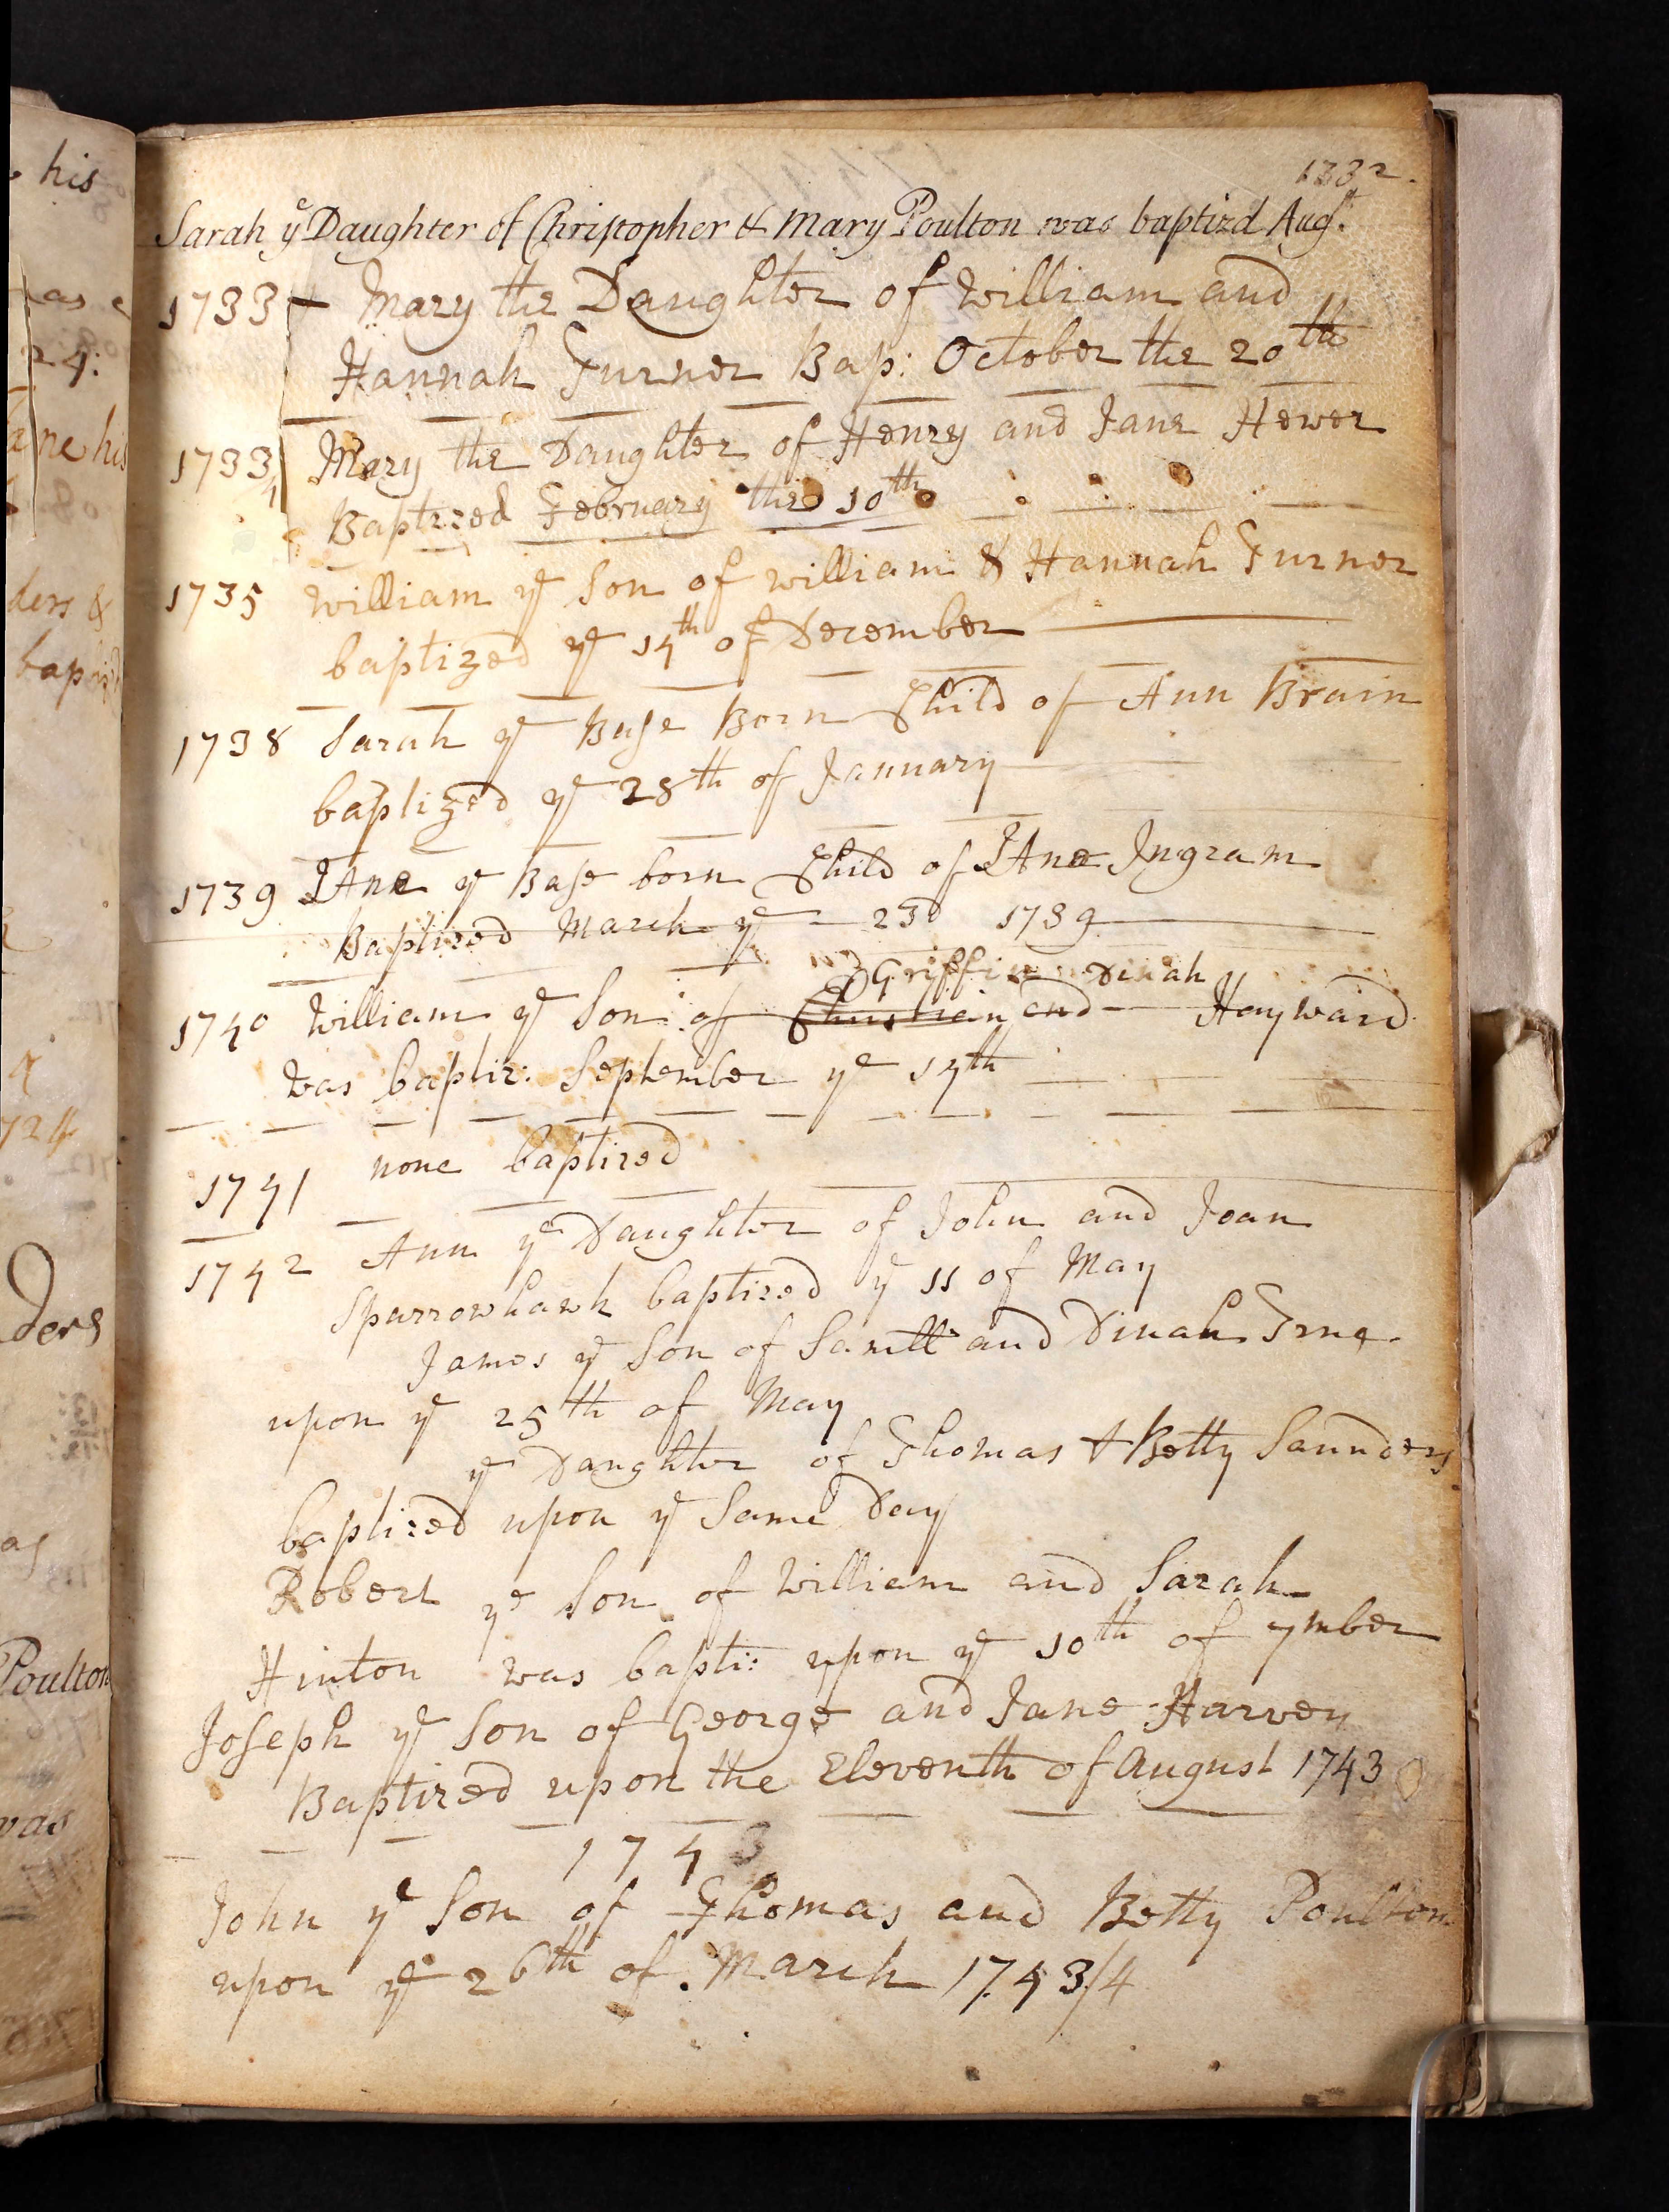 1732.
Sarah ye Daughter of Christopher & Mary Poulton was baptizd Augst.
1733 Mary the Daughter of William and
Hannah Turner Bap: October the 20th
1733/4 Mary the Daughter of Henry and Jane Hewer
Baptized February the 10th
1735 William ye Son of William & Hannah Turner
baptized ye 14th of December
1738 Sarah ye Base Born Child of Ann Brain
baptized ye 28th of January
1739 JAne ye Base born Child of JAne Ingram
Baptized March ye 23d 1739
Griffin Dinah
1740 William ye Son of Christian and Hayward
was baptiz: September ye 14th
1741 none baptized
1742 Ann ye Daughter of John and Joan
Sparrowhawk baptized ye 11 of May
James ye Son of Samll and Dinah True
upon ye 25th of May
ye Daughter of Thomas & Betty Saunders
baptized upon ye Same Day
Robert ye Son of William and Sarah
Hinton was bapti: upon ye 10th of 7mber
Joseph ye Son of George and Jane Harvey
Baptized upon the Eleventh of August 1743
1743
John ye Son of Thomas and Betty Poulton
upon ye 26th of March 1743/4
his
24:
ne his
ders &
724
ders
as
Poulton
was